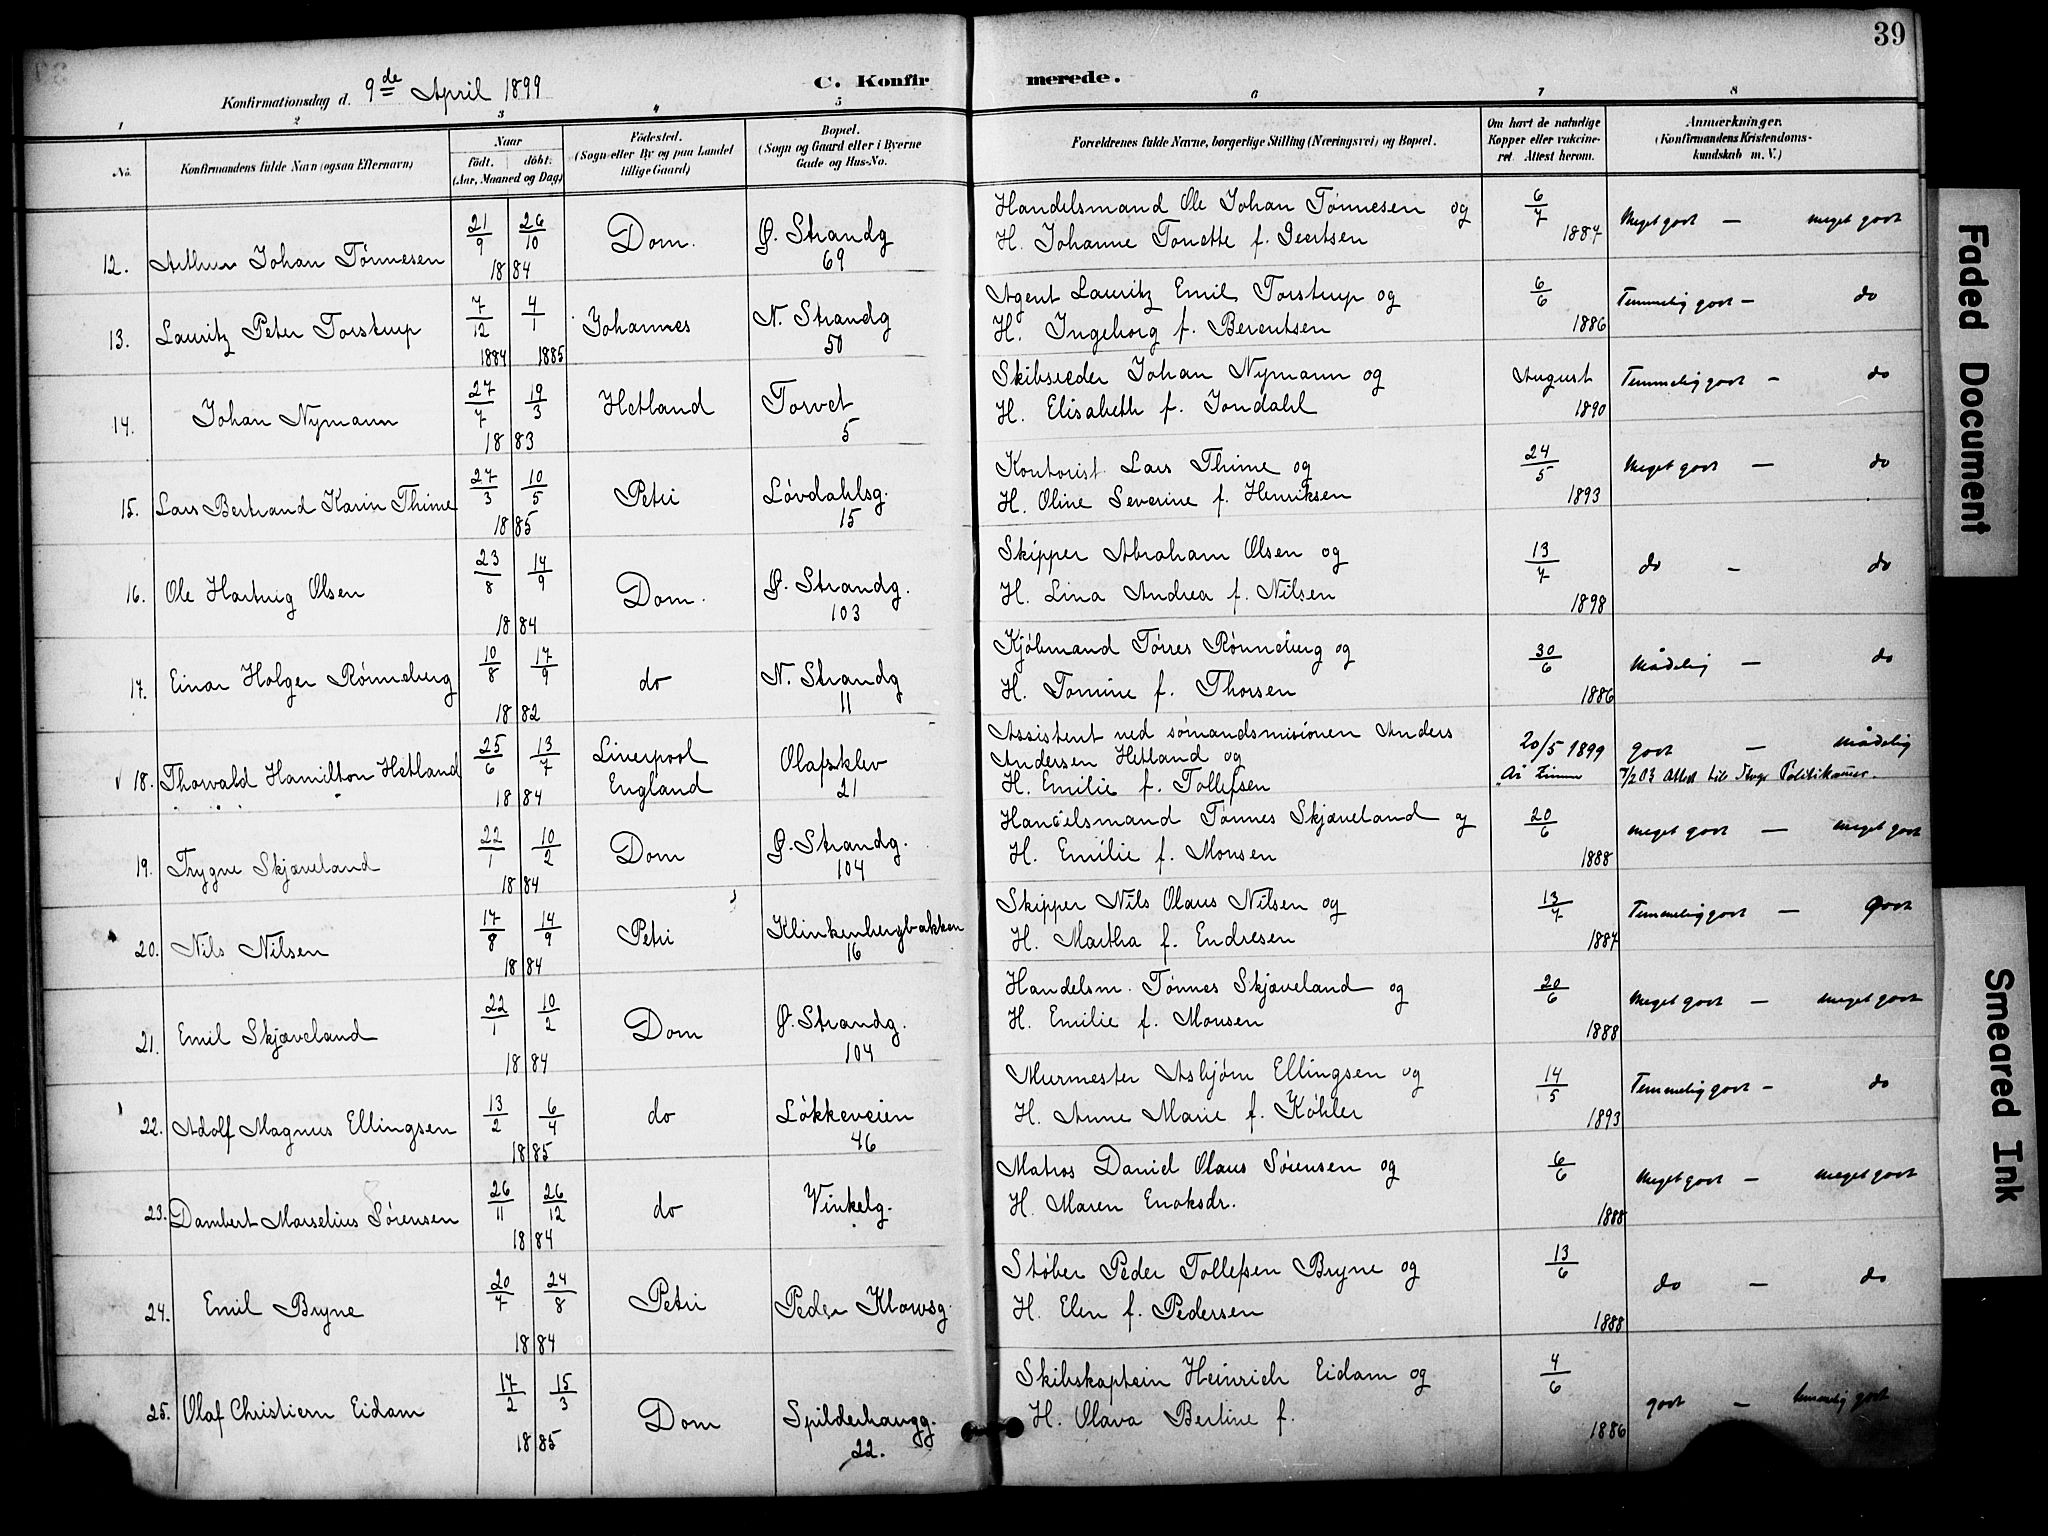 39
Konfirmationsdag d. 9de April 1899
C. Konfirmerede.
1 2 3 4 5 6 7 8
No.
Konfirmandens fulde Navn (ogsaa Efternavn)
Naar
födt. döbt.
(Aar, Maaned og Dag)
Födested.
(Sogn eller By og paa Landet
tillige Gaard)
Bopæl.
(Sogn og Gaard eller i Byerne
Gade og Hus-No.
Forældrenes fulde Navne, borgerlige Stilling (Næringsvei) og Bopæl.
Om havt de naturlige
Kopper eller vakcine-
ret. Attest herom.
Anmærkninger.
(Konfirmandens Kristendoms-
kundskab m. V.)
12. Arthur Johan Tönnesen 21/9 26/10 1884 Dom. Ø. Strandg 69
Handelsmand Ole Johan Tönnesen og
H. Johanne Tonette f. Geertsen
6/7 1887 Meget godt — meget godt
13. Lauritz Peter Torstrup 7/12 1884 4/1 1885 Johannes N. Strandg 50
Agent Lauritz Emil Torstrup og
H. Ingeborg f. Berentsen
6/6 1886 Temmelig godt — do
14. Johan Nymann 27/7 19/3 1883 Hetland Torvet 5
Skibsreder Johan Nymann og
H. Elisabeth f. Jondahl
August 1890 Temmelig godt — do
15. Lars Bertrand Karin Thime 27/3 10/5 1885 Petri Lövdahlsg. 15
Kontorist Lars Thime og
H. Oline Severine f. Henriksen
24/5 1893 Meget godt — do
16. Ole Hartvig Olsen 23/8 14/9 1884 Dom. Ø. Strandg. 103
Skipper Abraham Olsen og
H. Lina Andrea f. Nilsen
13/7 1898 do — do
17. Einar Holger Rönneberg 10/8 17/9 1882 do N. Strandg 11
Kjöbmand Törres Rönneberg og
H. Tomine f. Thorsen
30/6 1886 Mådelig — do
18. Thorvald Hamilton Hetland 25/6 13/7 1884 Liverpool England Olafsklev 21
Assistent ved sömandsmisionen Anders
Andersen Hetland og
H. Emilie f. Tollefsen
20/5 1899 godt — Mådelig
7/2 03 Attest til Politikamer.
19. Trygve Skjæveland 22/1 10/2 1884 Dom Ø. Strandg. 104
Handelsmand Tönnes Skjæveland og
H. Emilie f. Monsen
20/6 1888 meget godt — meget godt
20. Nils Nilsen 17/8 14/9 1884 Petri Klinkenbergbakken 16
Skipper Nils Olaus Nilsen og
H. Martha f. Endresen
13/7 1887 Temmelig godt — godt
21. Emil Skjæveland 22/1 10/2 1884 Dom Ø. Strandg. 104
Handelsm. Tönnes Skjæveland og
H. Emilie f. Monsen
20/6 1888 Meget godt — meget godt
22. Adolf Magnus Ellingsen 13/2 6/4 1885 do Lökkeveien 46
Murmester Asbjörn Ellingsen og
H. Anne Marie f. Köhler
14/5 1893 Temmelig godt — do
23. Dambert Marselius Sörensen 26/11 26/12 1884 do Vinkelg.
Matros Daniel Olaus Sörensen og
H. Maren Enoksdr.
6/6 1888 Meget godt — meget godt
24. Emil Bryne 20/7 24/8 1884 Petri Peder Klowsg.
Støber Peder Tollefsen Bryne og
H. Elen f. Pedersen
13/6 1888 do — do
25. Olaf Christiern Eidam 17/2 15/3 1885 Dom Spilderhaugg. 22.
Skibskaptein Heinrich Eidam og
H. Olava Bertine f.
4/6 1886 godt — temmelig godt
Faded Document
Smeared Ink